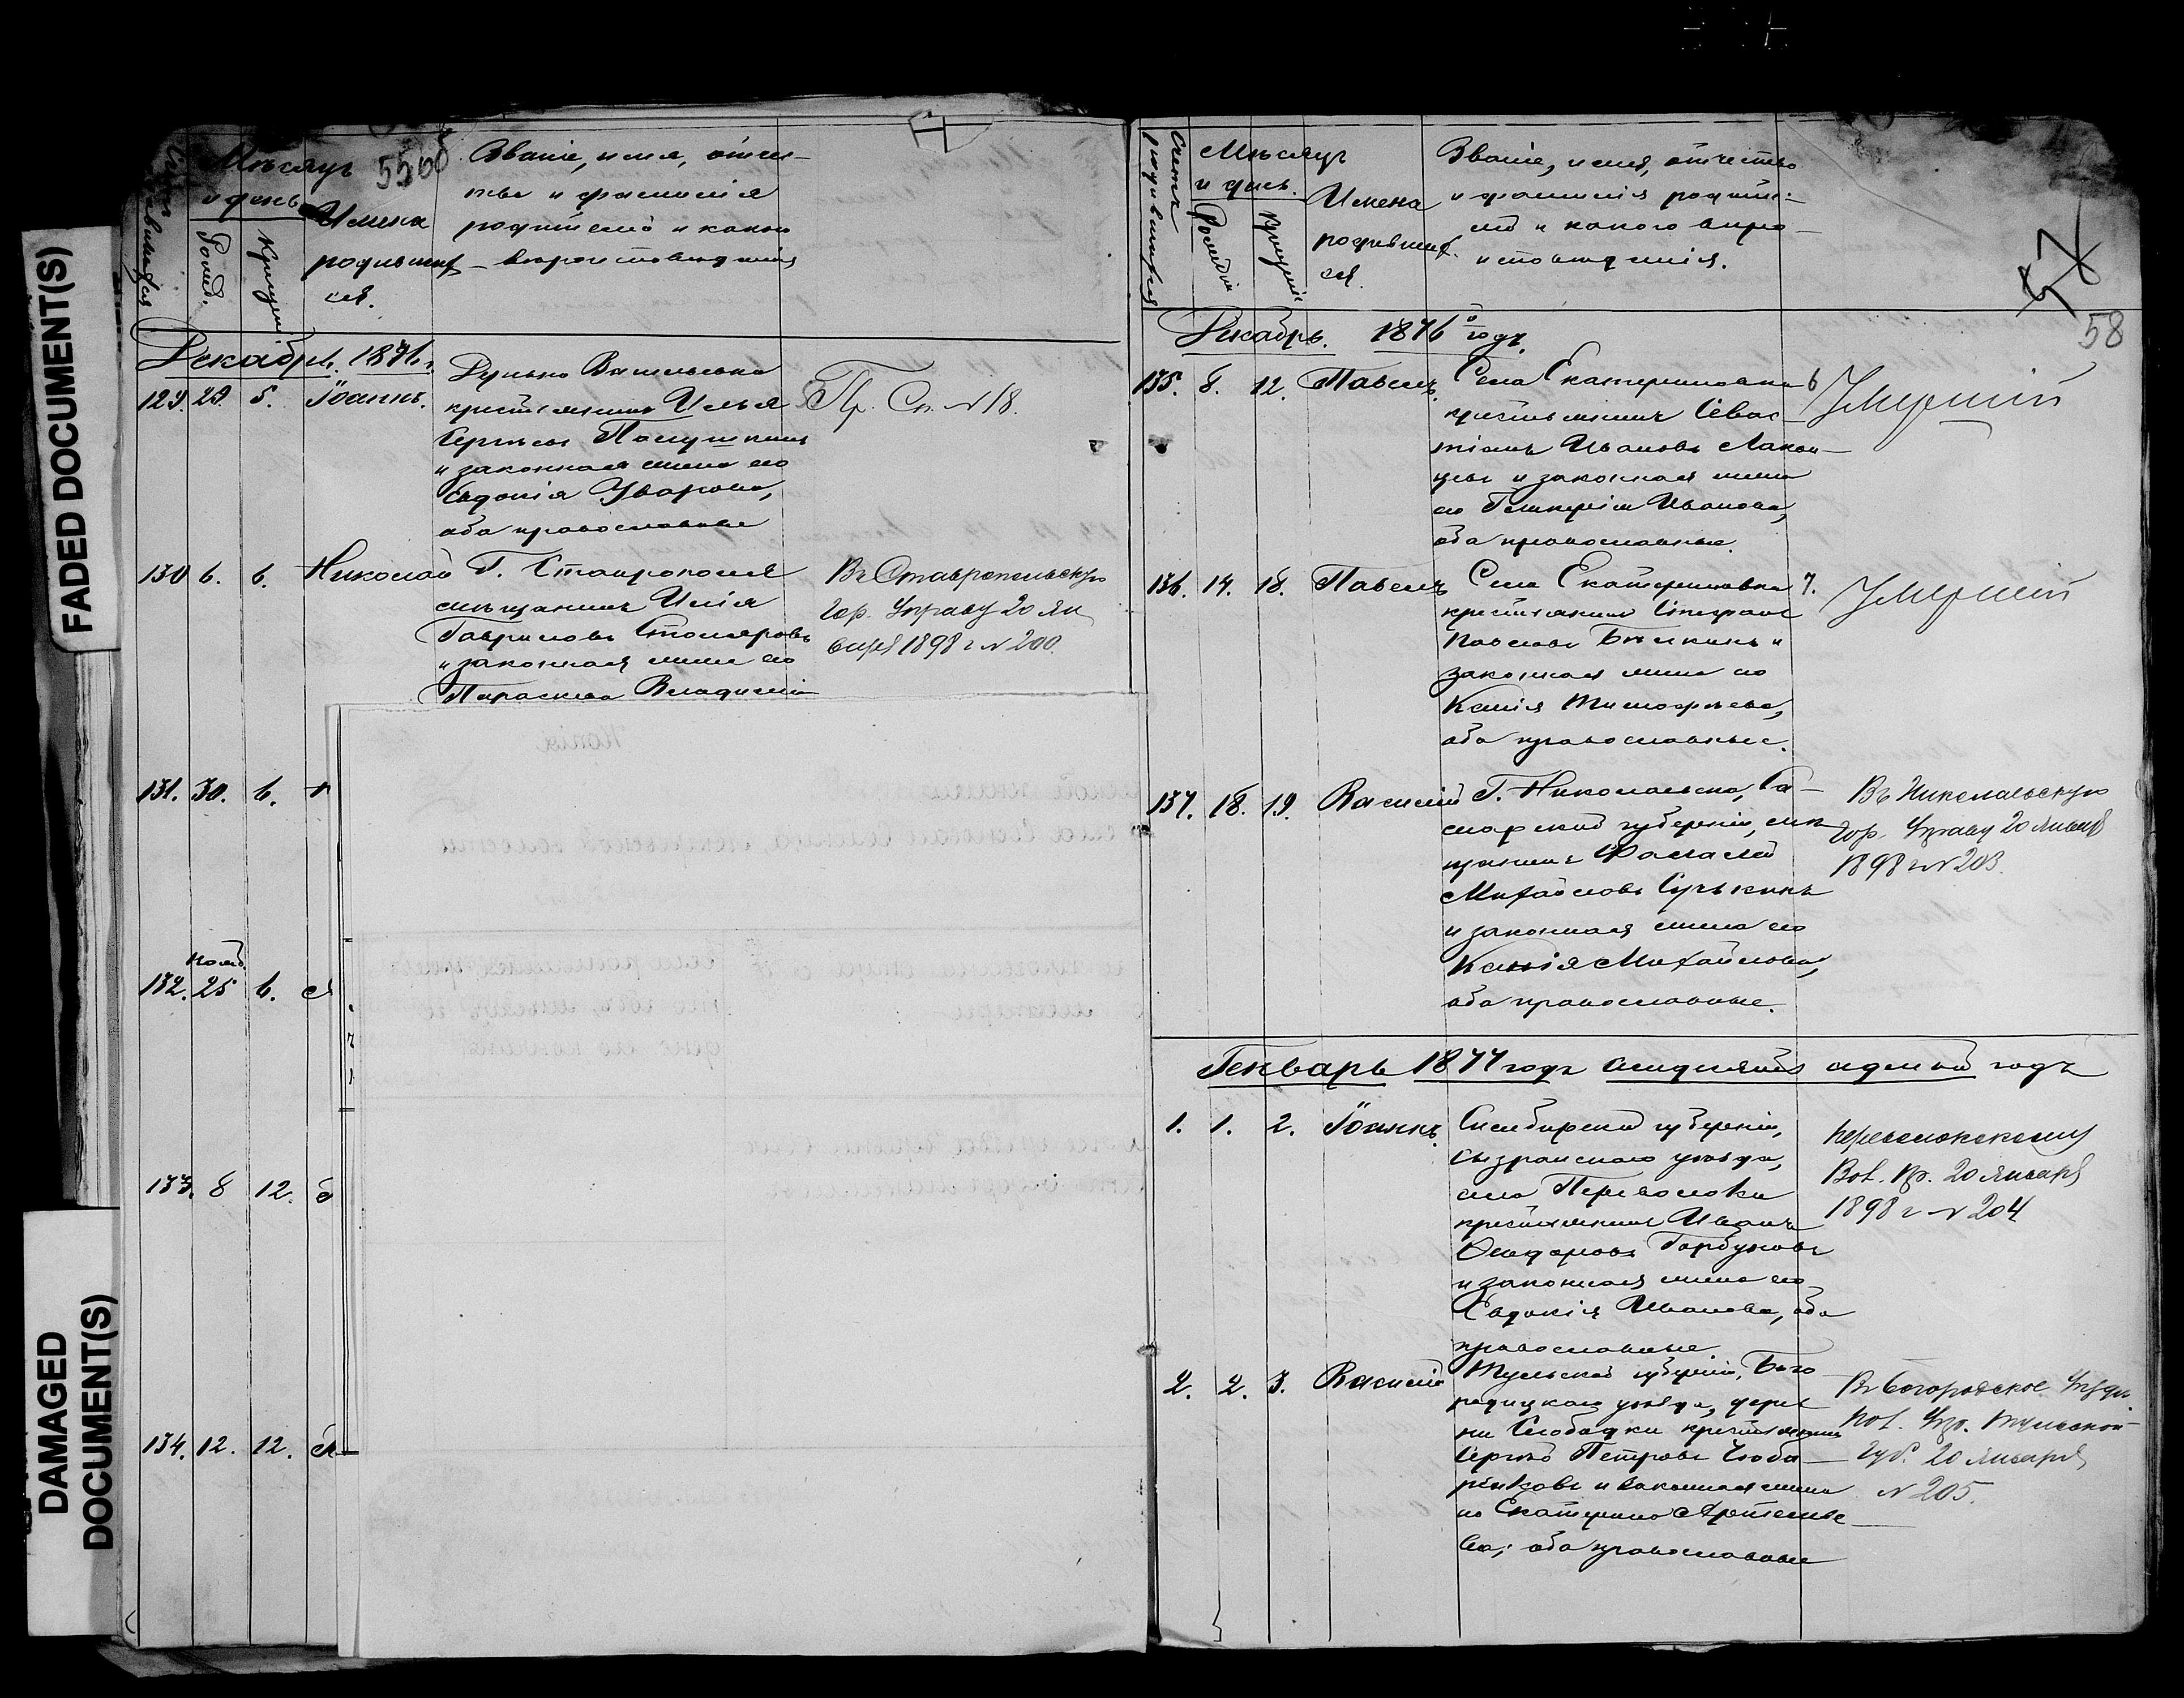 FADED DOCUMENT(S)
DAMAGED
DOCUMENT(S)
Мѣсяцъ
и день
Рожд.
Крещені
Имена
родивших
ся.
Званіе, имя, отчес-
тво и фамилія
родителей и какого
вѣроисповѣданія
Декабрь. 1876 г.
129. 29. 5. Іоаннъ.
крестьянинъ Илья
Пр. Сп. № 18.
и законная жена его
Евдокія Уварова,
оба православные
130 6. 6. Николай
Г. Ставрополя
мѣщанинъ Илія
Гавриловъ Столяровъ
и законная жена его
Параскева Владимі
Въ Ставропольскую
Гор. Управу 20 Ян
варя 1898 г № 200.
131. 30. 6.
нояб.
132. 25 6.
133. 8 12.
134. 12. 12.
Копія
Счетъ родившихся
Мѣсяцъ
и день.
Рожденія
Крещенія
Имена
родивших
ся.
Званіе, имя, отчество
и фамилія родите-
лей и какого вѣро-
исповѣданія.
57
58
Декабрь. 1876 годъ.
135. 8. 12. Павелъ.
Села Екатериновки 6
крестьянинъ Севас
тіанъ Ивановъ
и законная жена
его Гликерія Иванова,
оба православные.
Умершій
136. 14. 18. Павелъ
Села Екатериновки 7.
крестьянинъ Стефанъ
Павловъ Бѣлкинъ и
законная жена его
Ксенія Тимофѣева,
оба православные.
Умершій
137. 18. 19. Василій
Г. Николаевска, Са-
марской губерніи, мѣ
щанинъ
Михайловъ
и законная жена его
Ксенія Михайлова,
оба православные.
Въ Николаевскую
Гор. Управу 20 Января
1898 г № 203.
Генварь 1877 годъ семдесятъ седмой годъ
1. 1. 2. Іоаннъ.
Симбирской губерніи,
Сызранскаго уѣзда,
села Переволоки
крестьянинъ Иванъ
Ѳедоровъ Горбуновъ
и законная жена его
Евдокія Иванова, оба
православные.
Переволокскому
Вол. Пр. 20 Января
1898 г № 204
2. 2. 3. Василій
Тульской губерніи, Бого
родицкаго уѣзда, дерев
ни Слободки крестьянинъ
Сергѣй Петровъ
и законная жена
его Екатерина Артемье
ва, оба православные
Въ Богородское Уѣздн.
Пол. Упр. Тульской
Губ. 20 Января
№ 205.